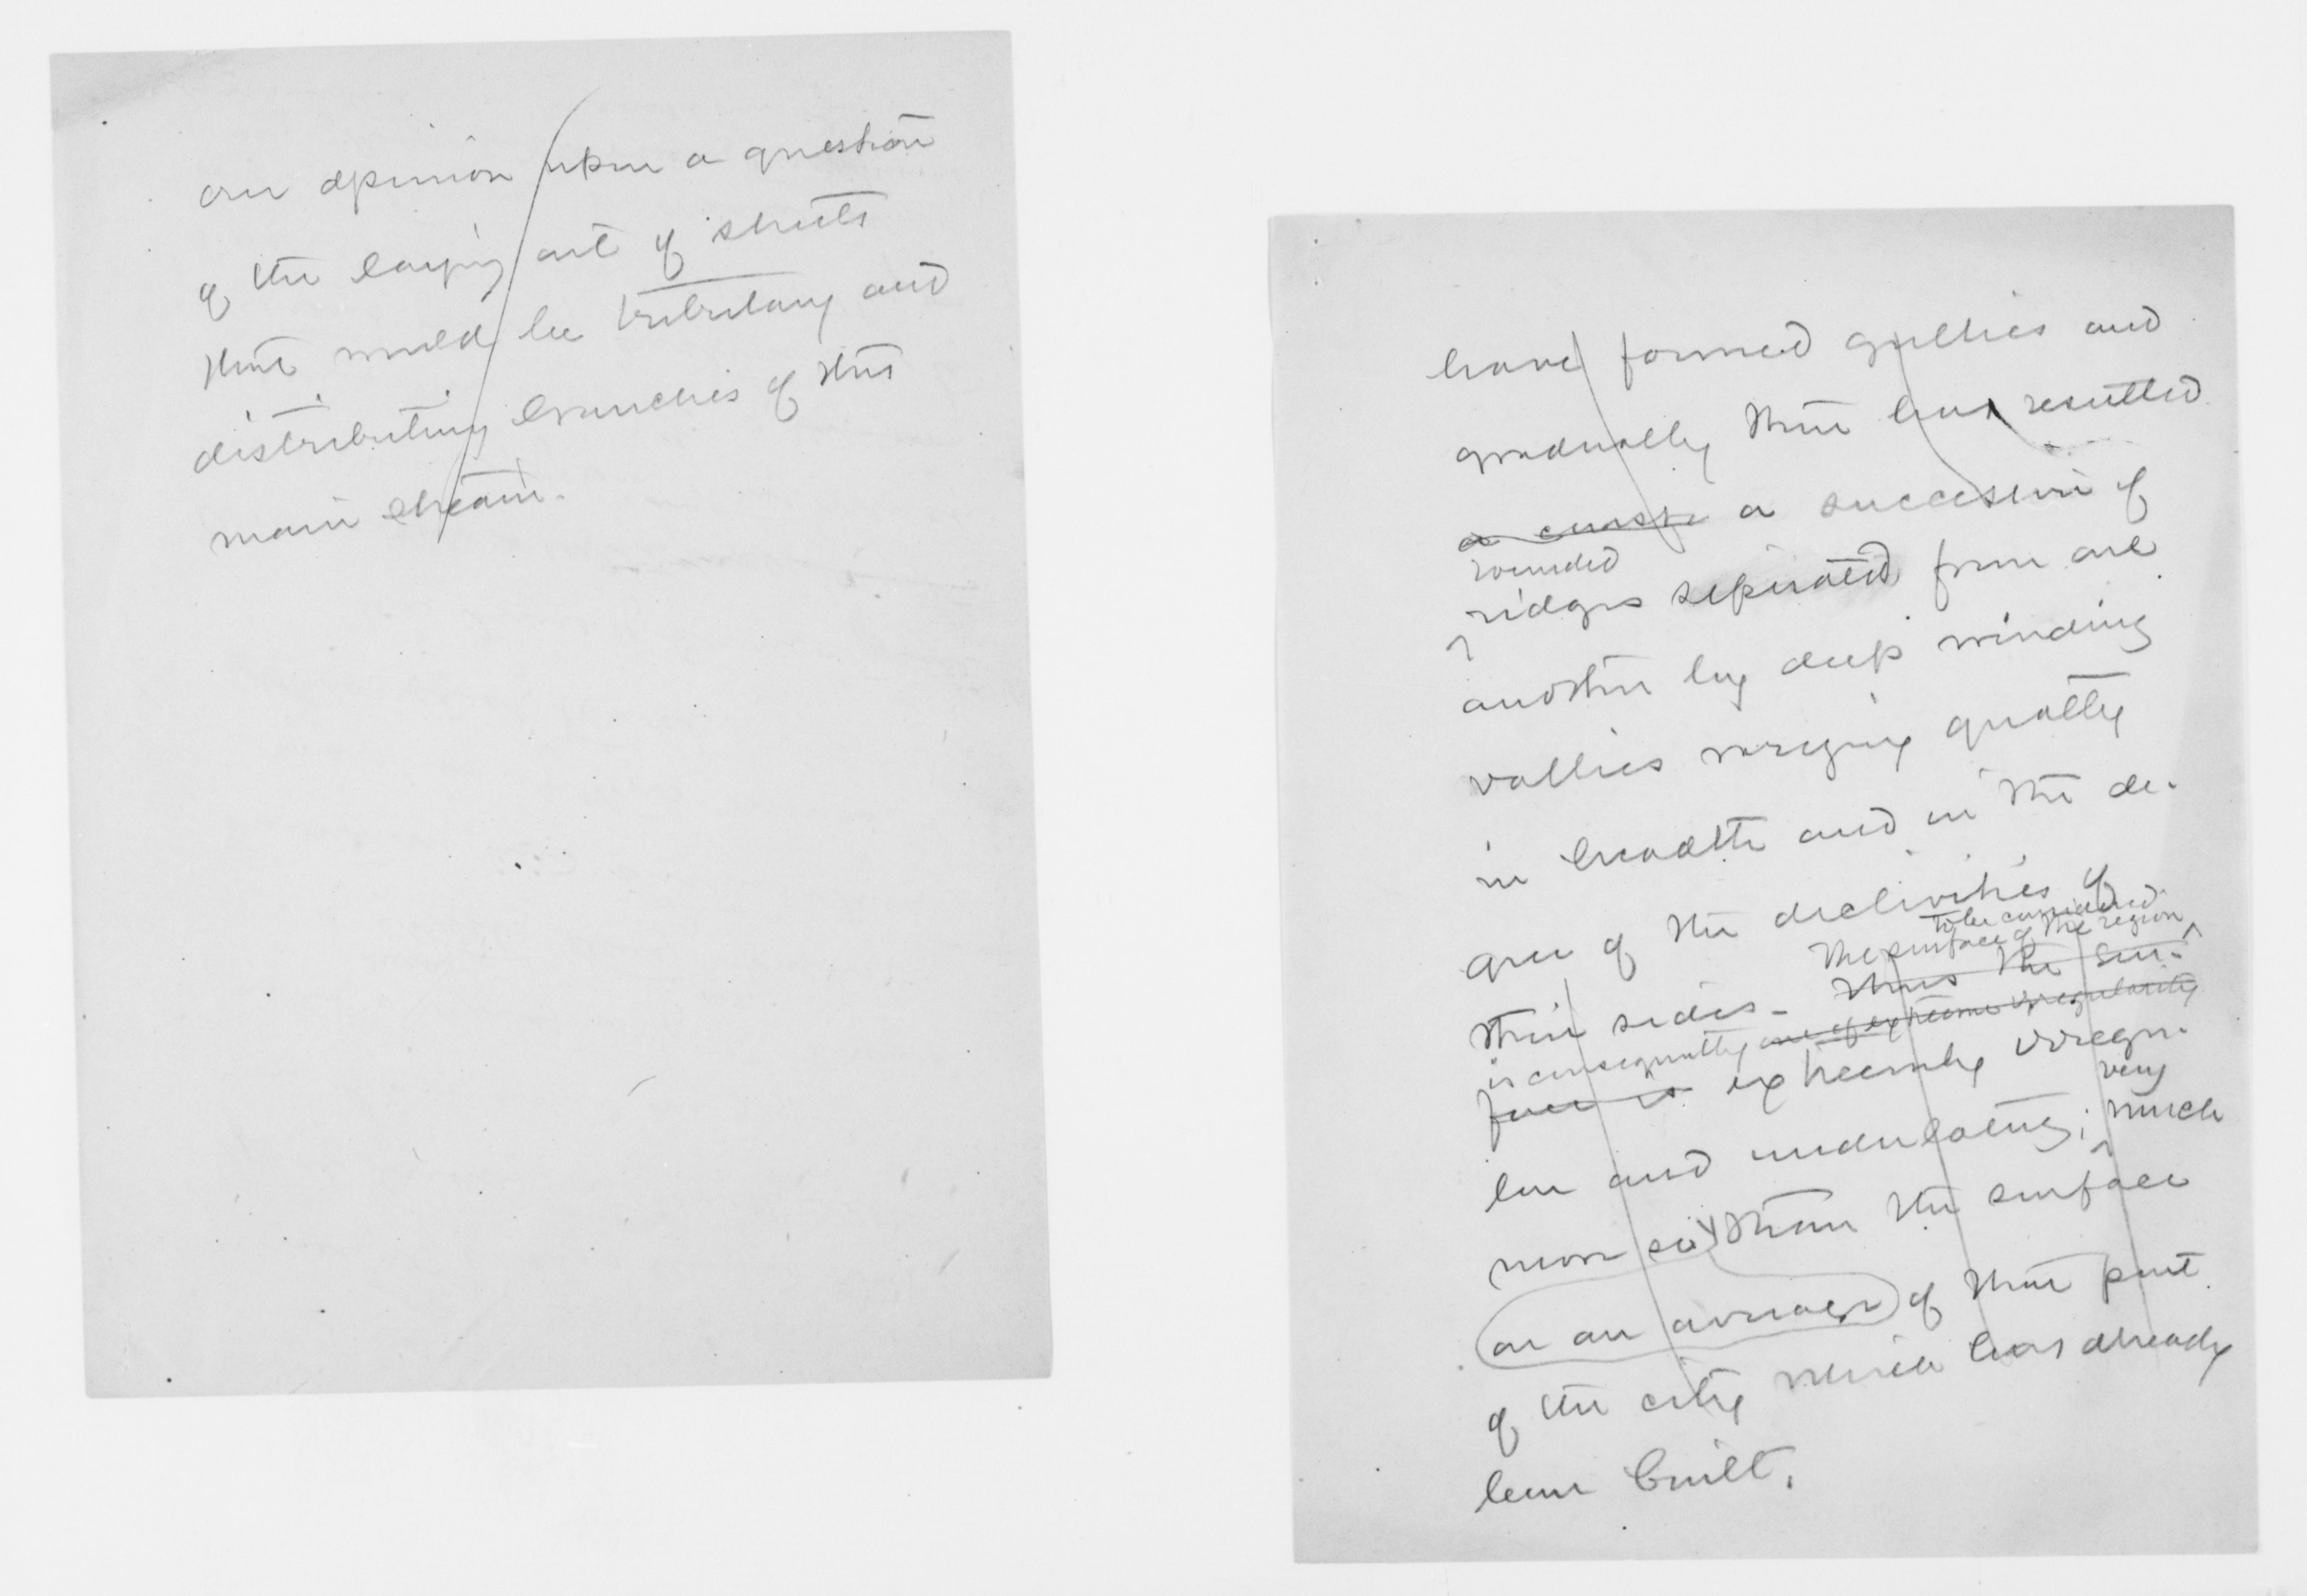 our opinion upon a question
of the laying out of streets
that would be tributary and
distributing branches of this
main stream.
have formed gullies and
gradually there has resulted
a course a succession of
rounded
ridges seperated from one
another by deep winding
vallies varying greatly
in breadth and in the de-
gree of the declivities of
to be considered
The surface of the region
their sides - Thus the sur-
is consequently one of extreme irregularity
face is extremely irregu-
very
lar and undulating; much
more so than the surface
on an average of that part
of the city which has already
been built.